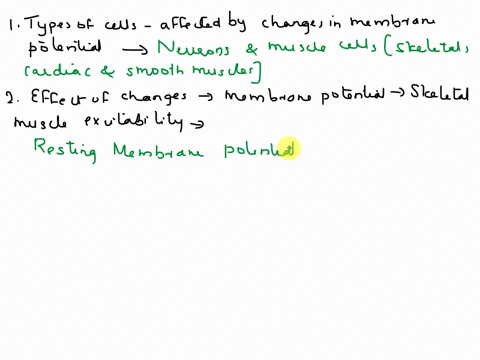 1. Types of cells - affected by changes in membrane
potential → Neurons & muscle cells [skeletal,
cardiac & smooth muscles]
2. Effect of changes → membrane potential → Skeletal
muscle exitability →
Resting Membrane potential